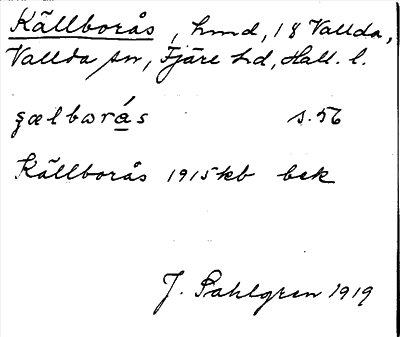 Källborås, hmd, 18 Vallda,
Vallda sn, Fjäre hd, Hall. l.
ȿælborás s. 56
Källborås 1915 kb bek
J. Sahlgren 1919